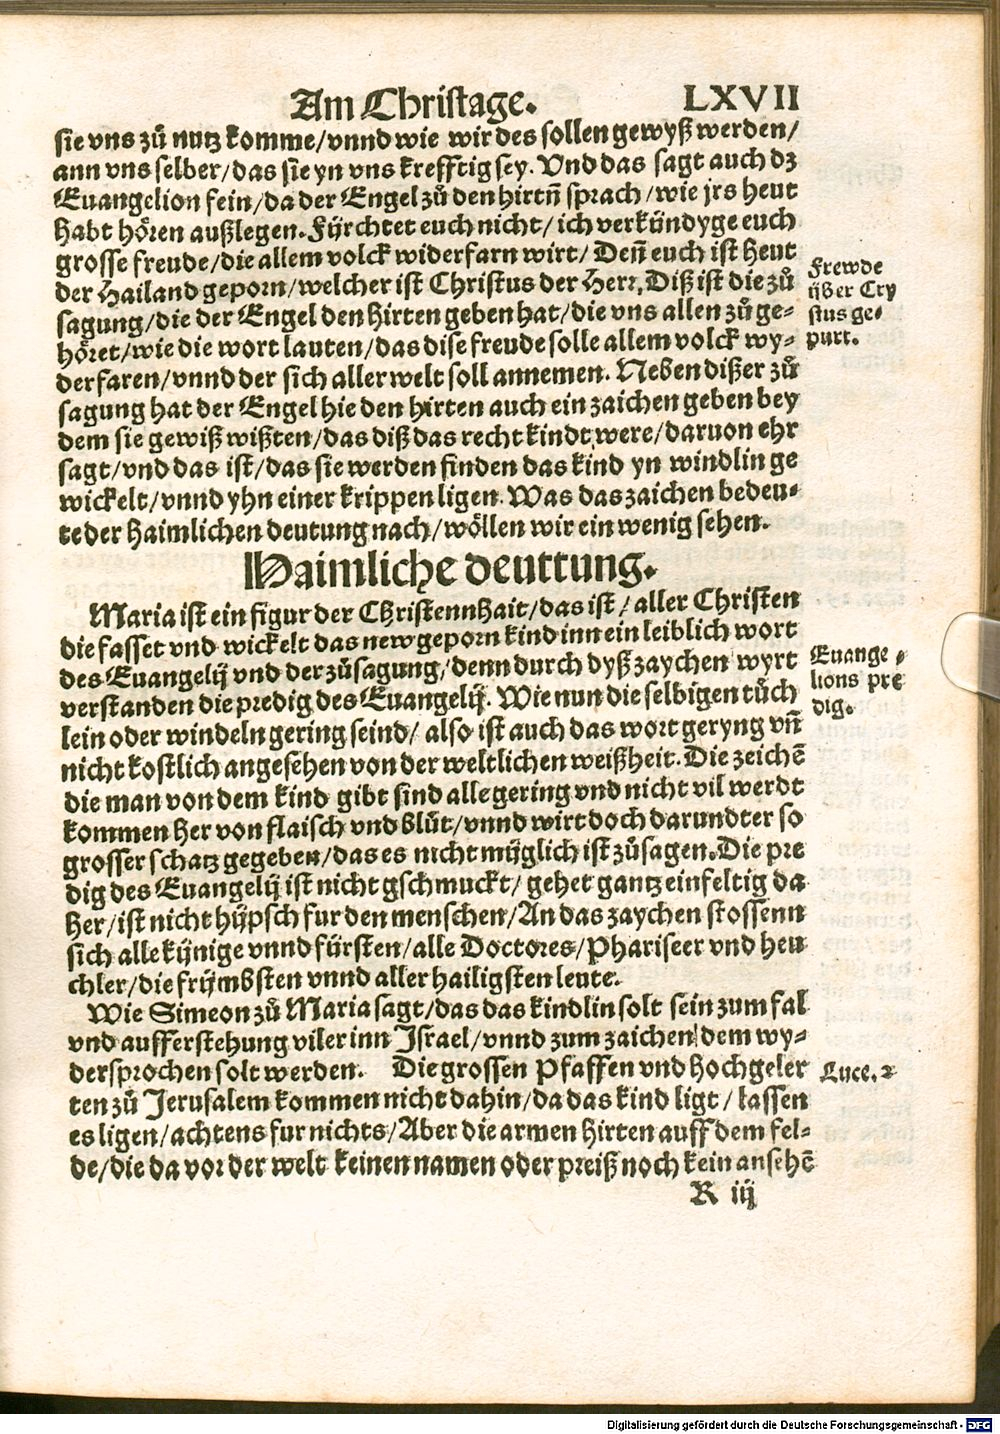 Am Christage. LXVII
sie vns zů nutz komme/vnnd wie wir des sollen gewyß werden/
ann vns selber/das sie yn vns krefftig sey. Vnd das sagt auch dz
Euangelion fein/da der Engel zů den hirtñ sprach/wie jrs heut
habt hören außlegen. Fÿrchtet euch nicht/ich verkündyge euch
grosse freude/die allem volck widerfarn wirt/Deñ euch ist heut
der Hailand geporn/welcher ist Christus der Herr, Diß ist die zů
sagung/die der Engel den hirten geben hat/die vns allen zů ge-
höret/wie die wort lauten/das dise freude solle allem volck wy-
derfaren/vnnd der sich aller welt soll annemen. Neben dißer zů
sagung hat der Engel hie den hirten auch ein zaichen geben bey
dem sie gewiß wißten/das diß das recht kindt were/daruon ehr
sagt/vnd das ist/das sie werden finden das kind yn windlin ge
wickelt/vnnd yhn einer krippen ligen. Was das zaichen bedeu-
te der haimlichen deutung nach/wöllen wir ein wenig sehen.
Frewde
ÿber Cry
stus ge-
purt.
Haimliche deuttung.
Maria ist ein figur der Christennhait/das ist/aller Christen
die fasset vnd wickelt das new geporn kind inn ein leiblich wort
des Euangelij vnd der zůsagung/denn durch dyß zaychen wyrt
verstanden die predig des Euangelij. Wie nun die selbigen tůch
lein oder windeln gering seind/also ist auch das wort geryng vñ
nicht kostlich angesehen von der weltlichen weißheit. Die zeichē
die man von dem kind gibt sind alle gering vnd nicht vil werdt
kommen her von flaisch vnd blůt/vnnd wirt doch darundter so
grosser schatz gegeben/das es nicht mÿglich ist zůsagen. Die pre
dig des Euangelij ist nicht gschmuckt/gehet gantz einfeltig da
her/ist nicht hÿpsch fur den menschen/An das zaychen stossenn
sich alle kÿnige vnnd fürsten/alle Doctores/Phariseer vnd heu
chler/die frÿmbsten vnnd aller hailigsten leute.
Euange-
lions pre
dig.
Wie Simeon zů Maria sagt/das das kindlin solt sein zum fal
vnd aufferstehung viler inn Israel/vnnd zum zaichen dem wy-
dersprochen solt werden. Die grossen Pfaffen vnd hochgeler
ten zů Jerusalem kommen nicht dahin/da das kind ligt/lassen
es ligen/achtens fur nichts/Aber die armen hirten auff dem fel-
de/die da vor der welt keinen namen oder preiß noch kein ansehē
Luce. 2
R iij
Digitalisierung gefördert durch die Deutsche Forschungsgemeinschaft - DFG